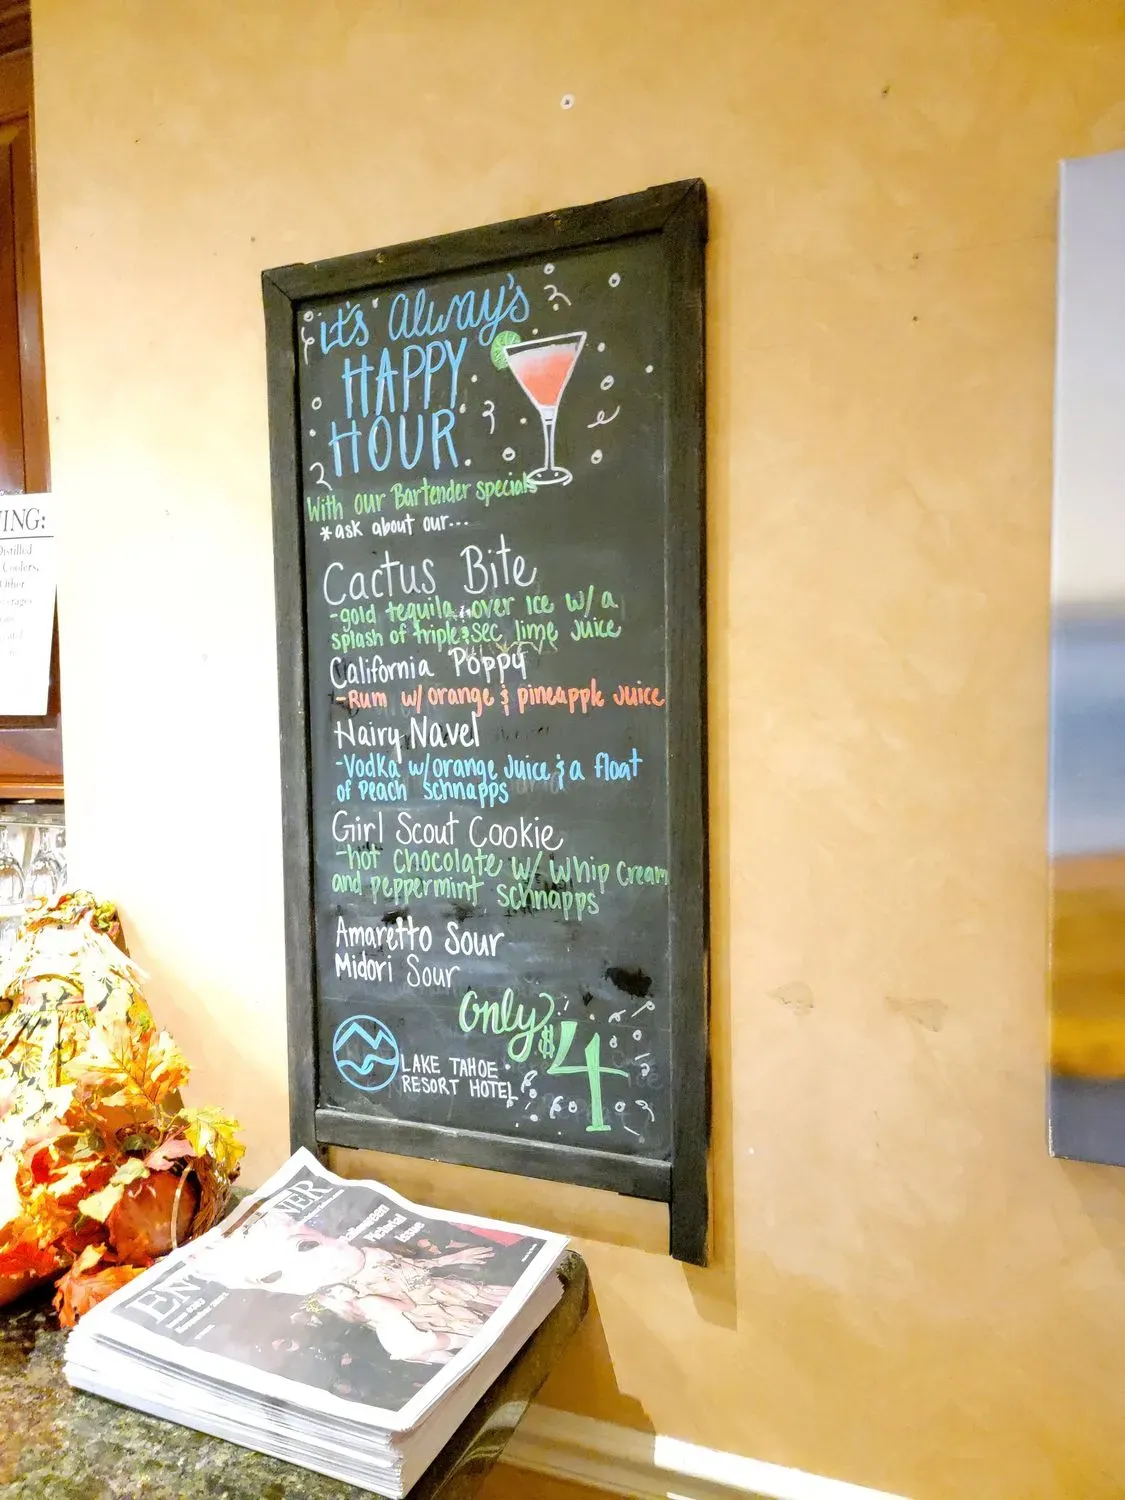 It's Alway's
HAPPY
HOUR
With our Bartender specials
*ask about our...
Cactus Bite
-gold tequila over Ice w/ a
splash of triple sec lime Juice
California Poppy
-Rum w/ orange & pineapple Juice
Hairy Navel
-Vodka w/ orange Juice & a float
of Peach schnapps
Girl Scout Cookie
-hot chocolate w/ Whip Cream
and peppermint schnapps
Amaretto Sour
Midori Sour
Only
$4
LAKE TAHOE
RESORT HOTEL
ING:
Distilled
Coolers,
Other
Halloween
Pictorial
Issue